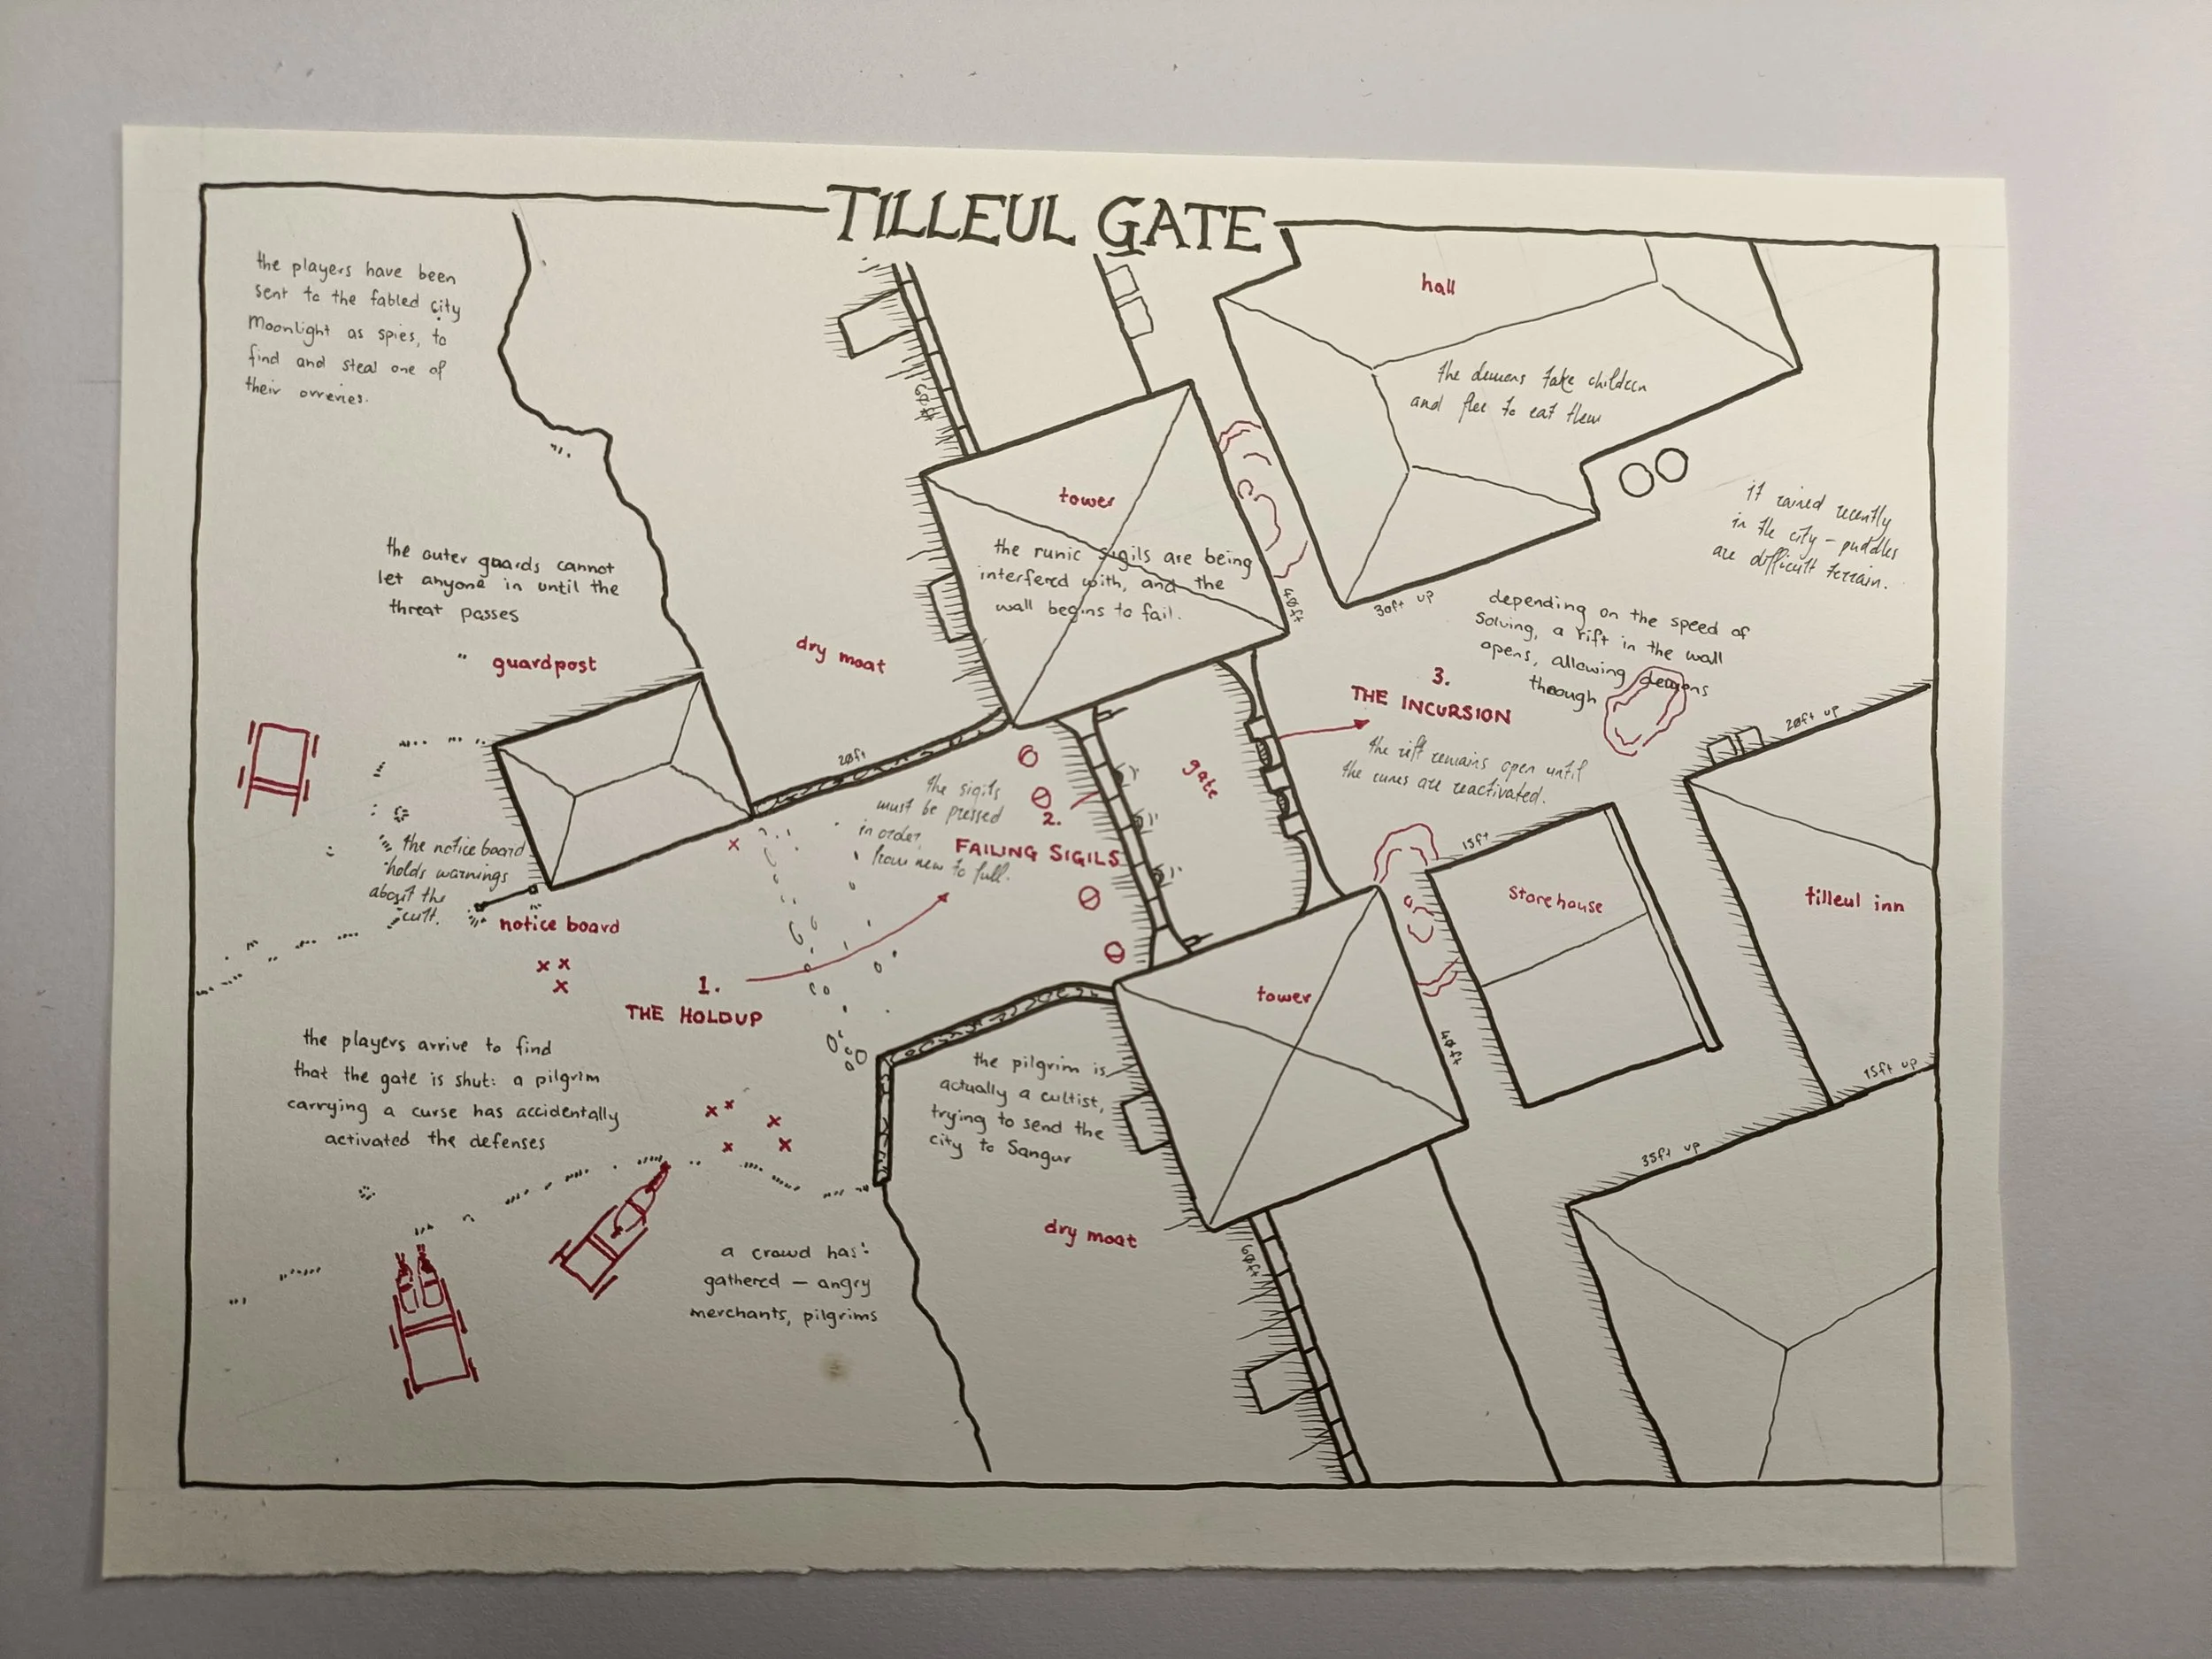 TILLEUL GATE
the players have been
sent to the fabled city
Moonlight as spies, to
find and steal one of
their orreries.
hall
the demons take children
and flee to eat them
60ft
tower
the runic sigils are being
interfered with, and the
wall begins to fail.
40ft
30ft up
it rained recently
in the city – puddles
are difficult terrain.
the outer guards cannot
let anyone in until the
threat passes
guardpost
dry moat
depending on the speed of
solving, a rift in the wall
opens, allowing demons
through
3.
THE INCURSION
the rift remains open until
the runes are reactivated.
20ft up
20ft
gate
the sigils
must be pressed
in order,
from new to full.
2.
FAILING SIGILS
15ft
storehouse
tilleul inn
the notice board
holds warnings
about the
cult.
notice board
1.
THE HOLDUP
tower
40ft
15ft up
the players arrive to find
that the gate is shut: a pilgrim
carrying a curse has accidentally
activated the defenses
the pilgrim is
actually a cultist,
trying to send the
city to Sangur
35ft up
dry moat
60ft
a crowd has
gathered – angry
merchants, pilgrims